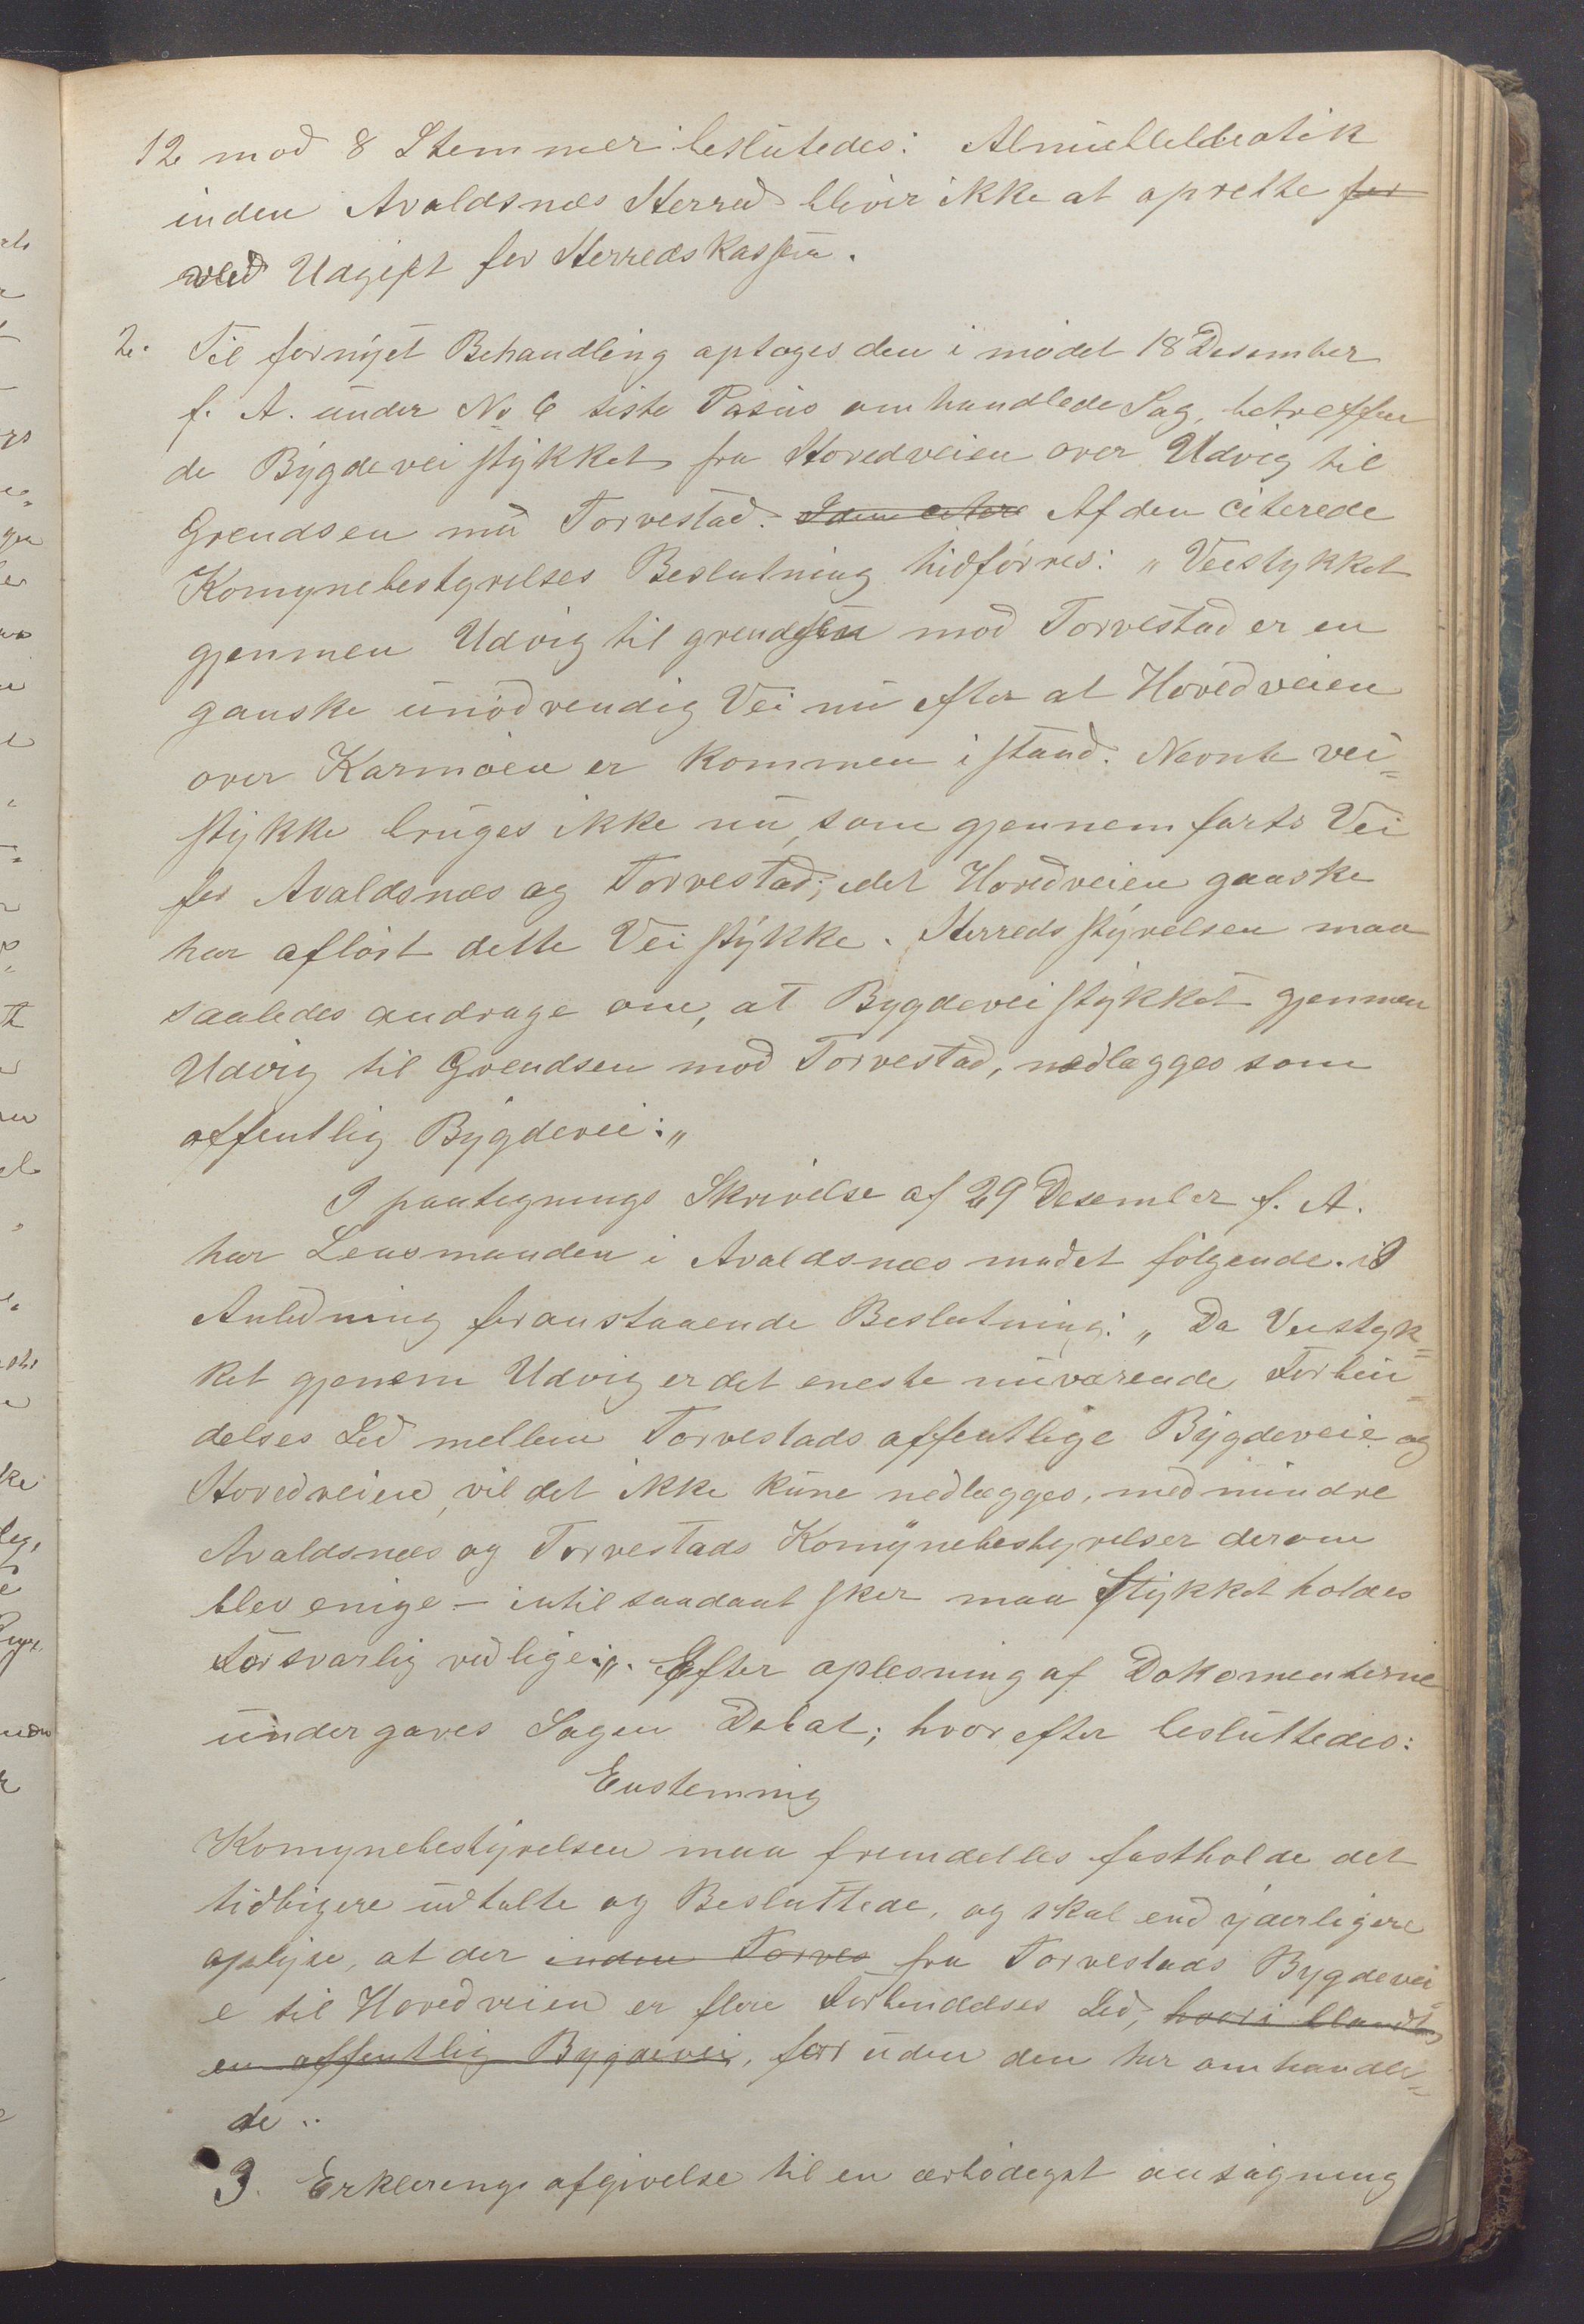 12 mod 8 Stemmer beslutedes:
inden Avaldsnæs Herred bliver ikke at oprette for
ved Udgift for Herredskassen.
2. Til fornyet Behandling optoges den i mødet 18 Desember
f. A. under No 6 siste Pasus omhandlede Sag, betreffen
de Bygdeveistykket fra Hovedveien over Udvig til
Grendsen mu Torvestad. I den citere Af den citerede
Komynebestyrelses Beslutning hidførres: „Veistykket
gjenmen Udvig til grendsen mod Torvestad er en
ganske unødvendig Vei nu efter at Hovedveien
over Karmøen er kommen i stand. Nevnte vei=
stykke bruges ikke nu, som gjennemfarts Vei
for Avaldsnæs og Torvestad; idet Hovedveien ganske
har afløst dette Veistykke. Herredsstyrelsen maa
saaledes andrage om, at Bygdeveistykket gjenmen
Udvig til Grendsen mod Torvestad, nedlægges som
offentlig Bygdevei:„
I paategnings Skrivelse af 29 Desember f. A.
har Lensmanden i Avaldsnæs følgende. I
Anledning foranstaaende Beslutning: „Da Veistyk=
ket gjenem Udvig er det eneste nuværende Forbin=
delses Led mellem Torvestads offentlige Bygdeveie og
Hovedveien, vil det ikke kune nedlægges, med mindre
Avaldsnæs og Torvestads Komynebestyrelser derom
blev enige – intil saadant sker maa Stykket holdes
forsvarlig vedlige:„. Efter oplesning af Dokomenterne
undergaves Sagen Debat; hvorefter besluttedes:
Enstemmig
Komynebestyrelsen maa fremdelles fastholde det
tidligere udtalte og Besluttede, og skal end yderligere
oplyse, at der inden Torves fra Torvestads Bygdevei=
e til Hovedveien er flere Forbindelses Led, hvori blandt
en offentlig Bygdevei, foruden den her omhandle=
de..
3. Erklerings afgivelse til en ærbødigst ansøgning